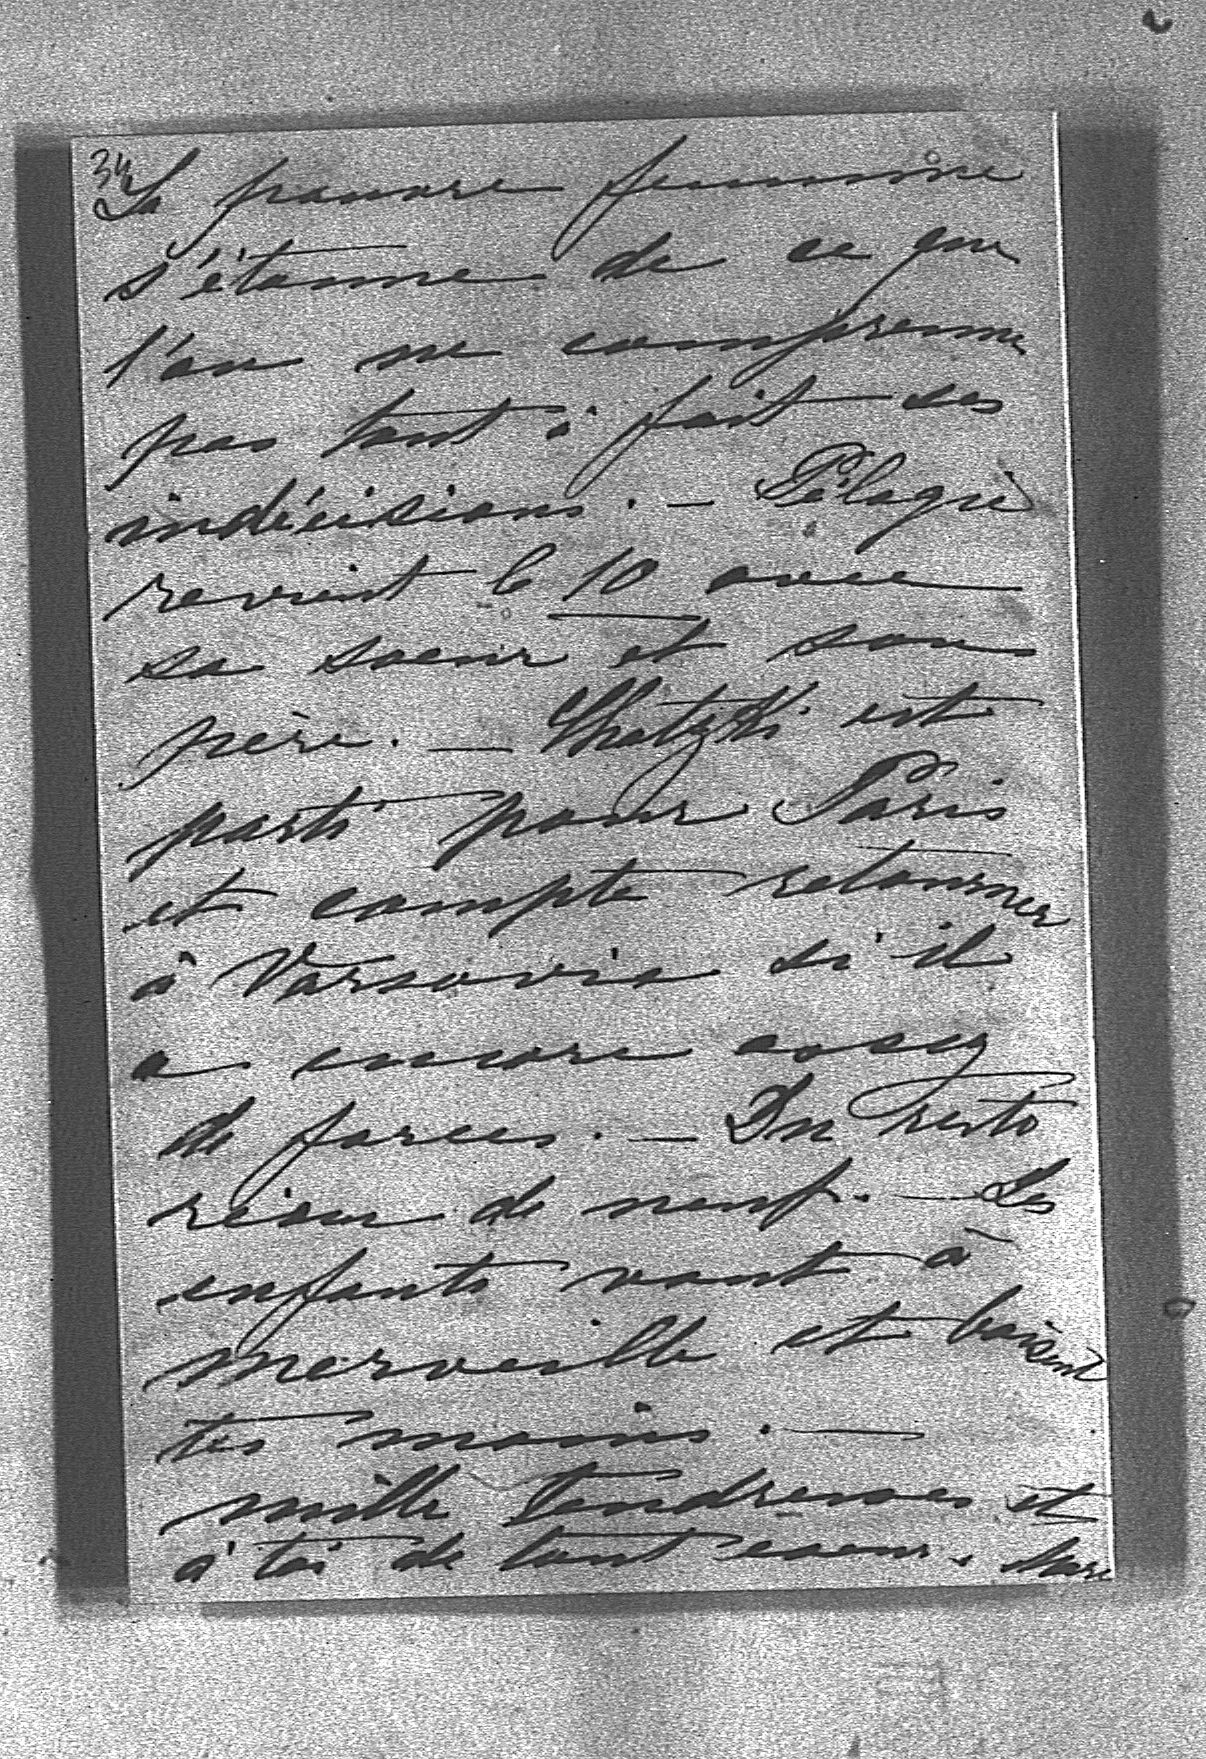 34
La pauvre femme
s'étonne de ce que
l'on ne comprenne
pas tout à fait ses
indécisions. — Pélagie
revient le 10 avec
sa soeur et son
père. — est
parti pour Paris
et compte retourner
à Varsovie si il
a encore assez
de forces. — Du reste
rien de neuf. — Les
enfants vont à
merveille et baisent
tes mains. —
mille tendresses et
à toi de tout coeur.